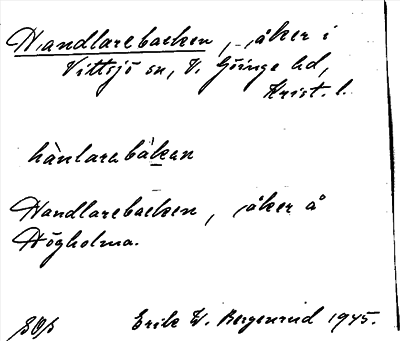 Handlarebacken, åker i
Vittsjö sn, V. Göinge hd,
Krist. l.
hànlarabàkan
Handlarebacken, åker å
Högholma.
Erik W. Bergenrud 1945.